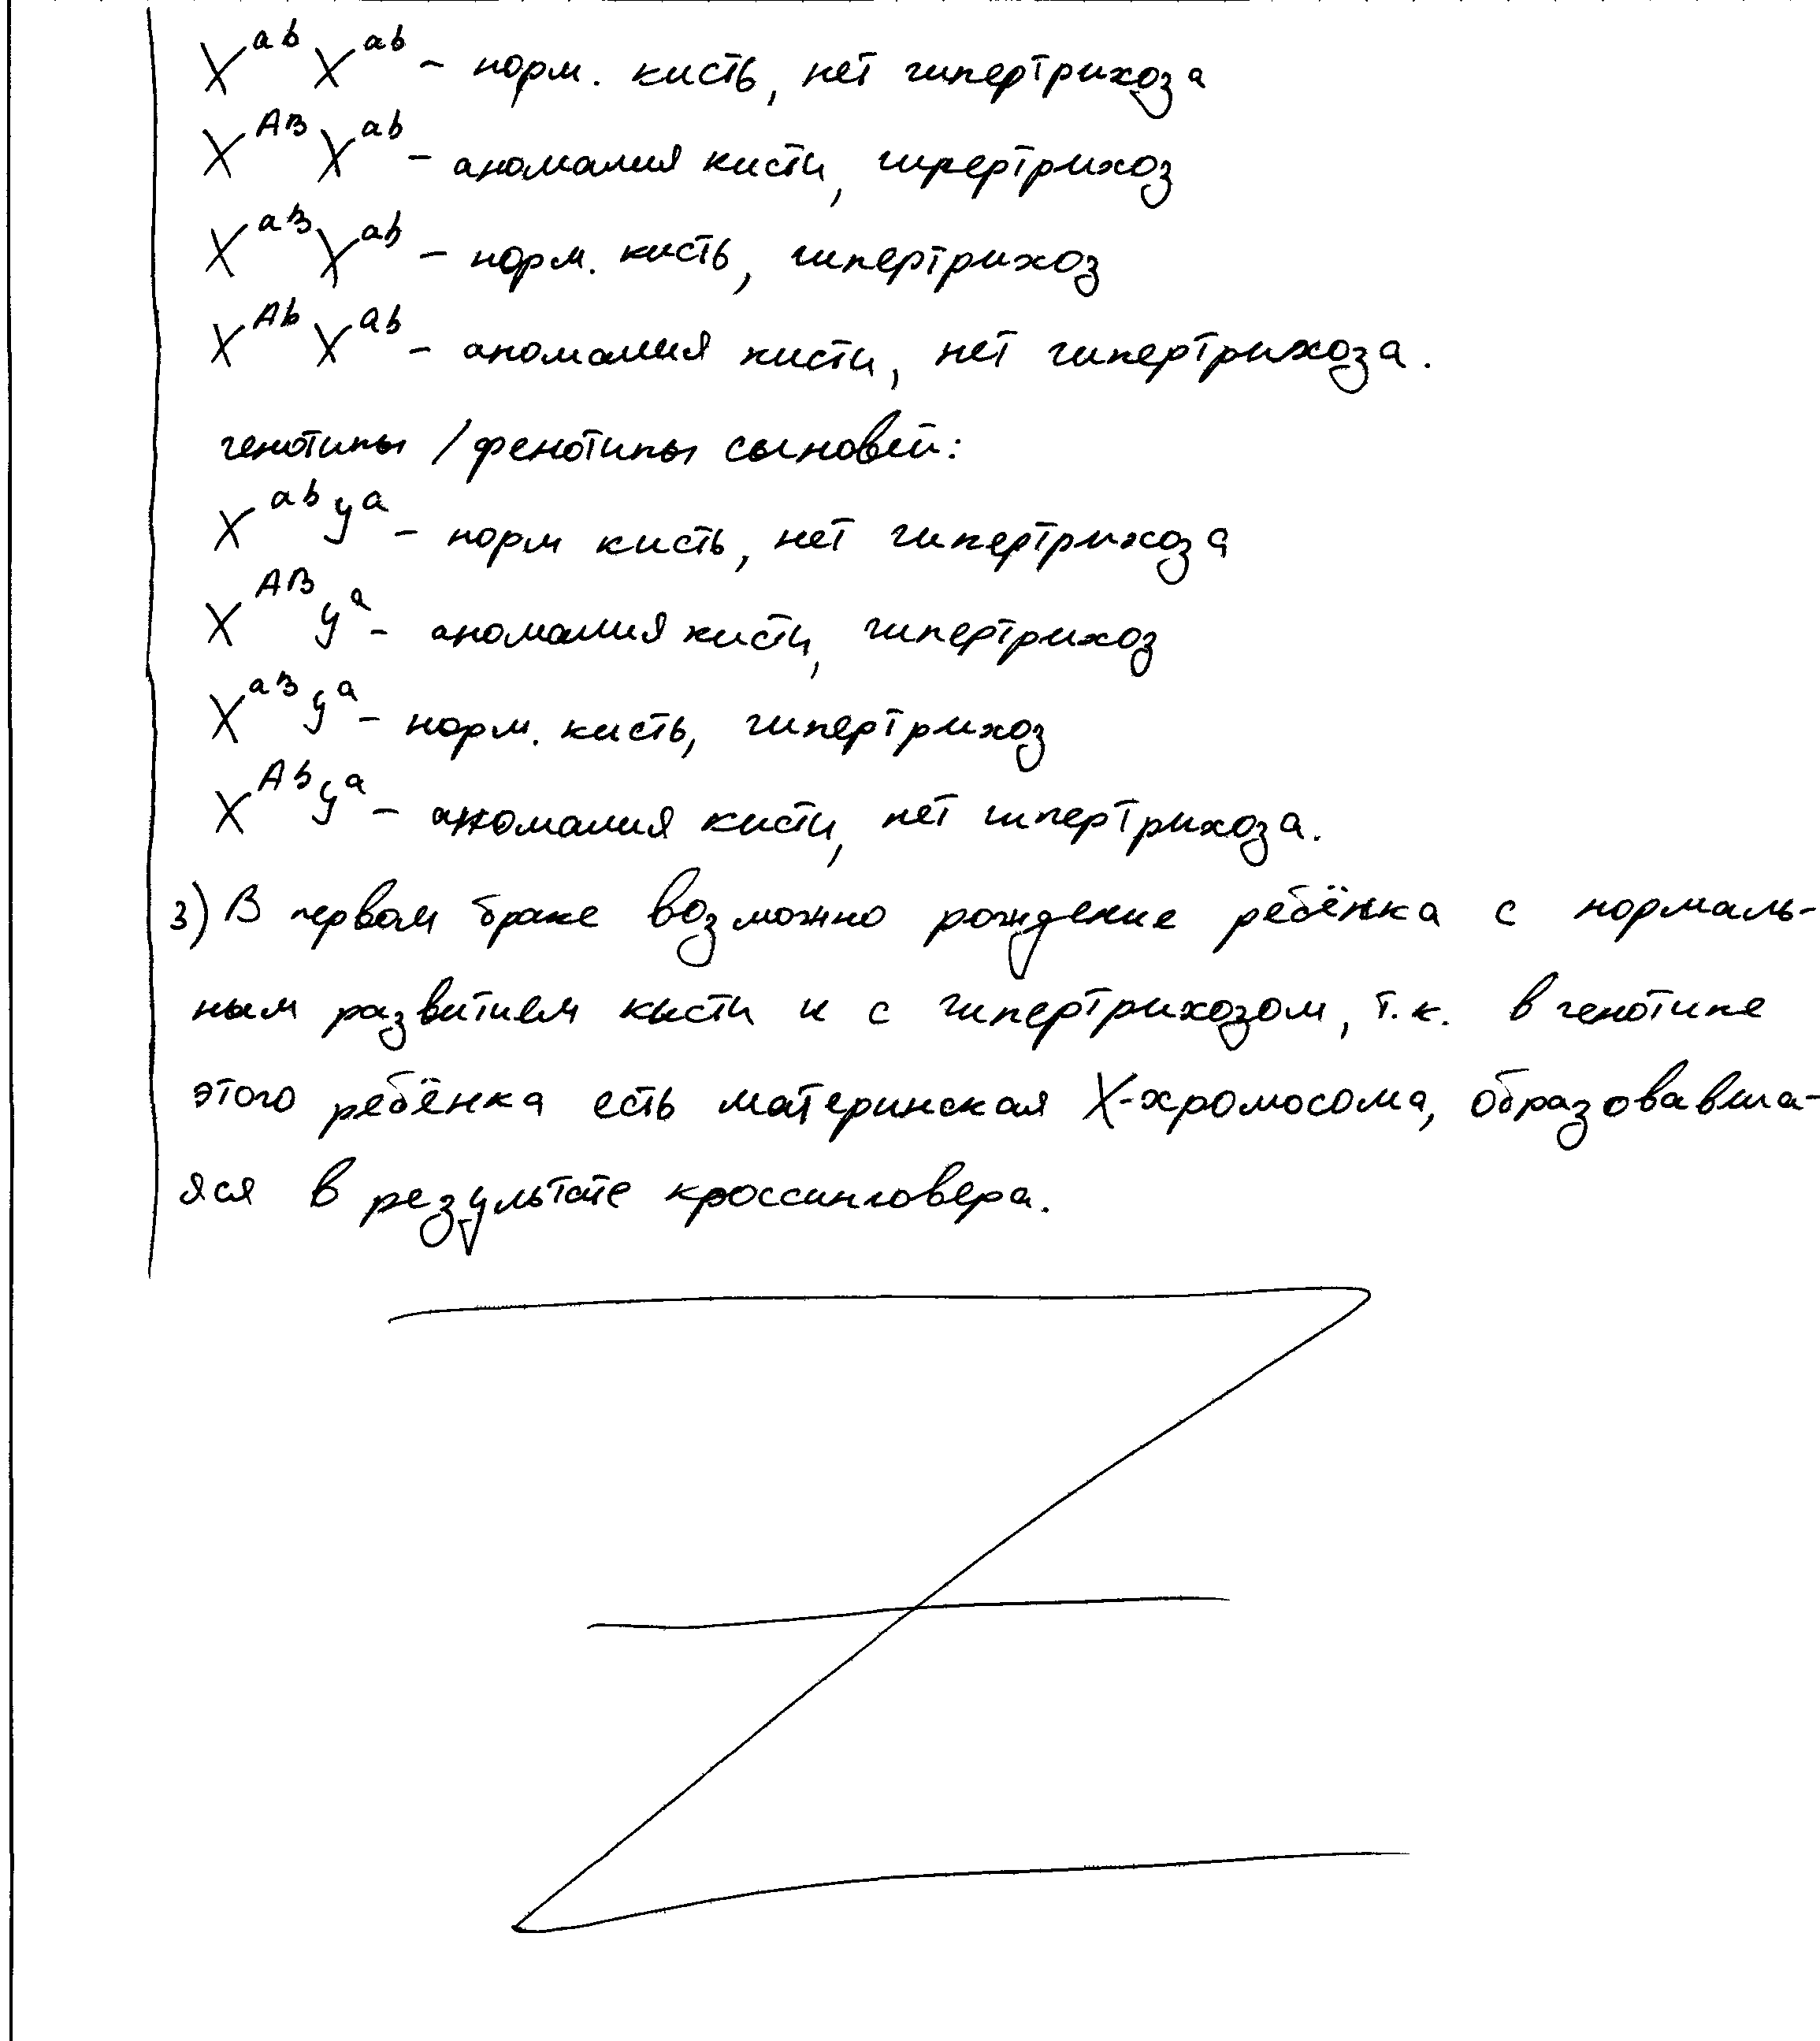 X^ab X^ab – норм. кисть, нет гипертрихоза
X^AB X^ab – аномалия кисти, гипертрихоз
X^aB X^ab – норм. кисть, гипертрихоз
X^Ab X^ab – аномалия кисти, нет гипертрихоза.
генотипы / фенотипы сыновей:
X^ab y^a – норм кисть, нет гипертрихоза
X^AB y^a – аномалия кисти, гипертрихоз
X^aB y^a – норм. кисть, гипертрихоз
X^Ab y^a – аномалия кисти, нет гипертрихоза.
3) В первом браке возможно рождение ребёнка с нормаль-
ным развитием кисти и с гипертрихозом, т.к. в генотипе
этого ребёнка есть материнская X-хромосома, образовавша-
яся в результате кроссинговера.